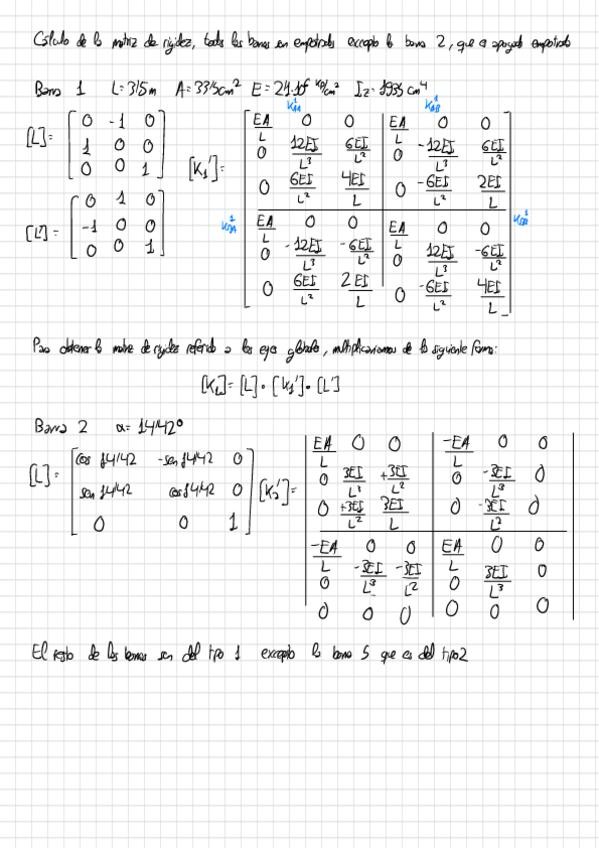 Cálculo de la matriz de rigidez, todas las barras son empotradas excepto la barra 2, que es apoyada empotrada
Barra 1 L=3'5m A=33'5cm² E=2'1.10⁶ kp/cm² Iz=1935 cm⁴
[L]=
0 -1 0
1 0 0
0 0 1
[L']=
0 1 0
-1 0 0
0 0 1
[K₁']=
K¹AA K¹AB
EA/L 0 0 EA/L 0 0
0 12EI/L³ 6EI/L² 0 -12EI/L³ 6EI/L²
0 6EI/L² 4EI/L 0 -6EI/L² 2EI/L
K¹BA K¹BB
EA/L 0 0 EA/L 0 0
0 -12EI/L³ -6EI/L² 0 12EI/L³ -6EI/L²
0 6EI/L² 2EI/L 0 -6EI/L² 4EI/L
Para obtener la matriz de rigidez referida a los ejes globales, multiplicaremos de la siguiente forma:
[K₁]=[L]·[K₁']·[L']
Barra 2 α=14'42º
[L]=
cos 14'42 -sen 14'42 0
sen 14'42 cos 14'42 0
0 0 1
[K₂']=
EA/L 0 0 -EA/L 0 0
0 3EI/L³ +3EI/L² 0 -3EI/L³ 0
0 +3EI/L² 3EI/L 0 -3EI/L² 0
-EA/L 0 0 EA/L 0 0
0 -3EI/L³ -3EI/L² 0 3EI/L³ 0
0 0 0 0 0 0
El resto de las barras son del tipo 1 excepto la barra 5 que es del tipo 2